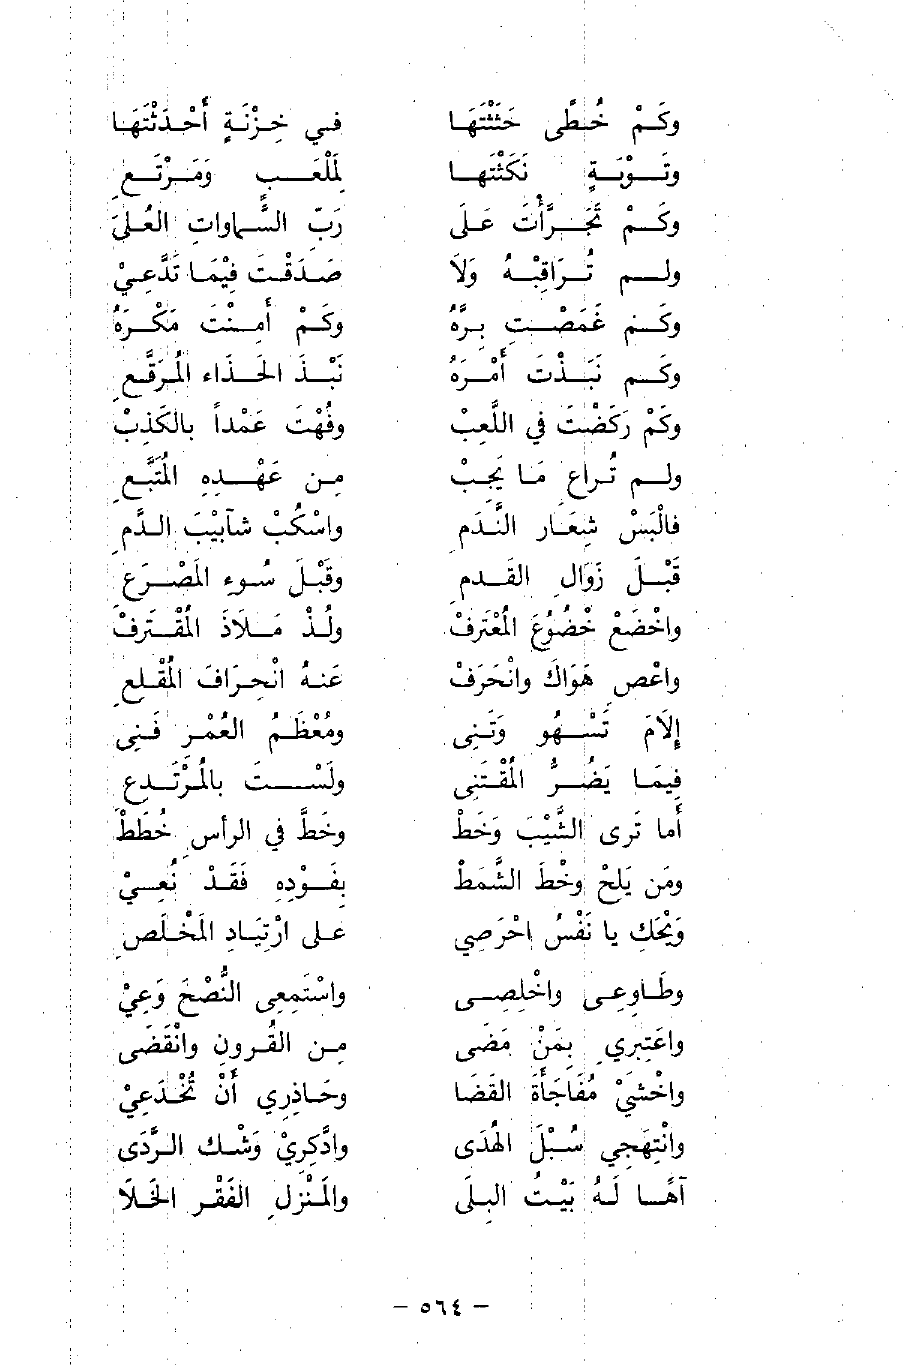 وكَمْ خُطًى حَثَثْتَهَا في خِزْيَةٍ أَحْدَثْتَهَا
وتَوْبَةٍ نَكَثْتَهَا لِمَلْعَبٍ وَمَرْتَعِ
وكَمْ تَجَرَّأْتَ عَلَى رَبِّ السَّماوَاتِ العُلَى
ولم تُرَاقِبْهُ وَلَا صَدَقْتَ فِيْمَا تَدَّعِيْ
وكَم غَمَصْتَ بِرَّهُ وكَمْ أَمِنْتَ مَكْرَهُ
وكَم نَبَذْتَ أَمْرَهُ نَبْذَ الحِذَاءِ المُرَقَّعِ
وكَمْ رَكَضْتَ في اللَّعِبْ وفُهْتَ عَمْداً بالكَذِبْ
ولم تُراعِ مَا يَجِبْ مِن عَهْدِهِ المُتَّبَعِ
فالْبَسْ شِعَارَ النَّدَمِ واسْكُبْ شآبِيْبَ الدَّمِ
قَبْلَ زَوَالِ القَدَمِ وقَبْلَ سُوءِ المَصْرَعِ
واخْضَعْ خُضُوْعَ المُعْتَرِفْ ولُذْ مَلَاذَ المُقْتَرِفْ
واعْصِ هَوَاكَ وانْحَرِفْ عَنهُ انْحِرَافَ المُقْلِعِ
إلَامَ تَسْهُو وَتَنِي ومُعْظَمُ العُمْرِ فَنِي
فِيمَا يَضُرُّ المُقْتَنِي ولَسْتَ بالمُرْتَدِعِ
أَما تَرى الشَّيْبَ وَخَطْ وخَطَّ في الرأسِ خُطَطْ
ومَن يَلُحْ وخْطُ الشَّمَطْ بفَوْدِهِ فَقَدْ نُعِيْ
وَيْحَكِ يا نَفْسُ احْرَصِي على ارْتِيَادِ المَخْلَصِ
وطَاوِعي واخْلِصِي واسْتَمِعِي النُّصْحَ وَعِيْ
واعْتَبِرِي بِمَنْ مَضَى مِن القُرونِ وانْقَضَى
واخْشَيْ مُفَاجَأَةَ القَضَا وحَاذِرِي أَنْ تُخْدَعِيْ
وانْتَهِجِي سُبْلَ الهُدَى وادَّكِرِيْ وَشْكَ الرَّدَى
آهًا لَهُ بَيْتُ البِلَى والمَنْزِلِ الفَقْرِ الخَلَا
- ٥٦٤ -